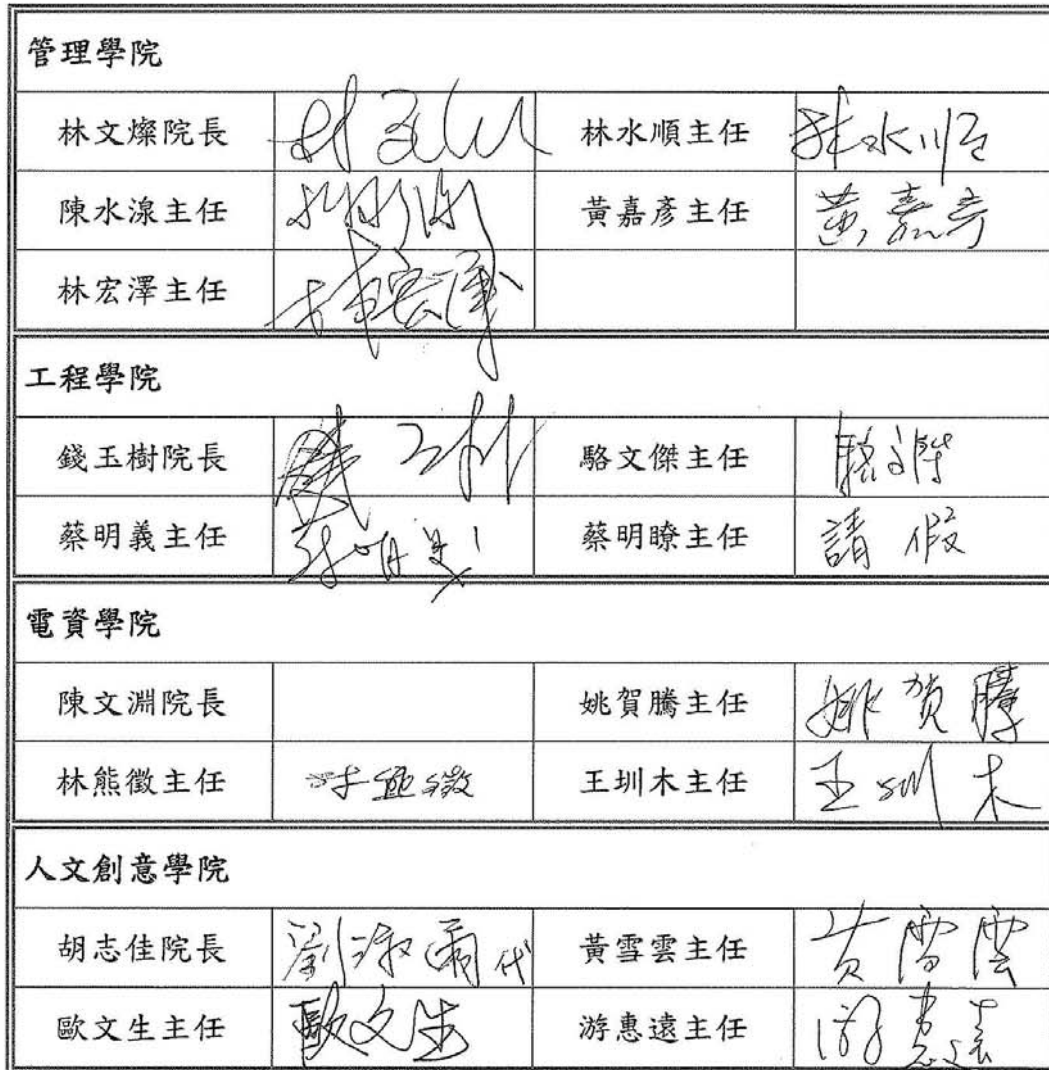 管理學院
林文燦院長 林水順主任 林水順
陳水湶主任 黃嘉彥主任 黃嘉彥
林宏澤主任 林宏澤
工程學院
錢玉樹院長 錢玉樹 駱文傑主任 駱文傑
蔡明義主任 蔡明義 蔡明瞭主任 請假
電資學院
陳文淵院長 姚賀騰主任 姚贺騰
林熊徵主任 王圳木主任 王圳木
人文創意學院
胡志佳院長 劉淑爾代 黃雪雲主任 黃雪雲
歐文生主任 歐文生 游惠遠主任 游惠遠